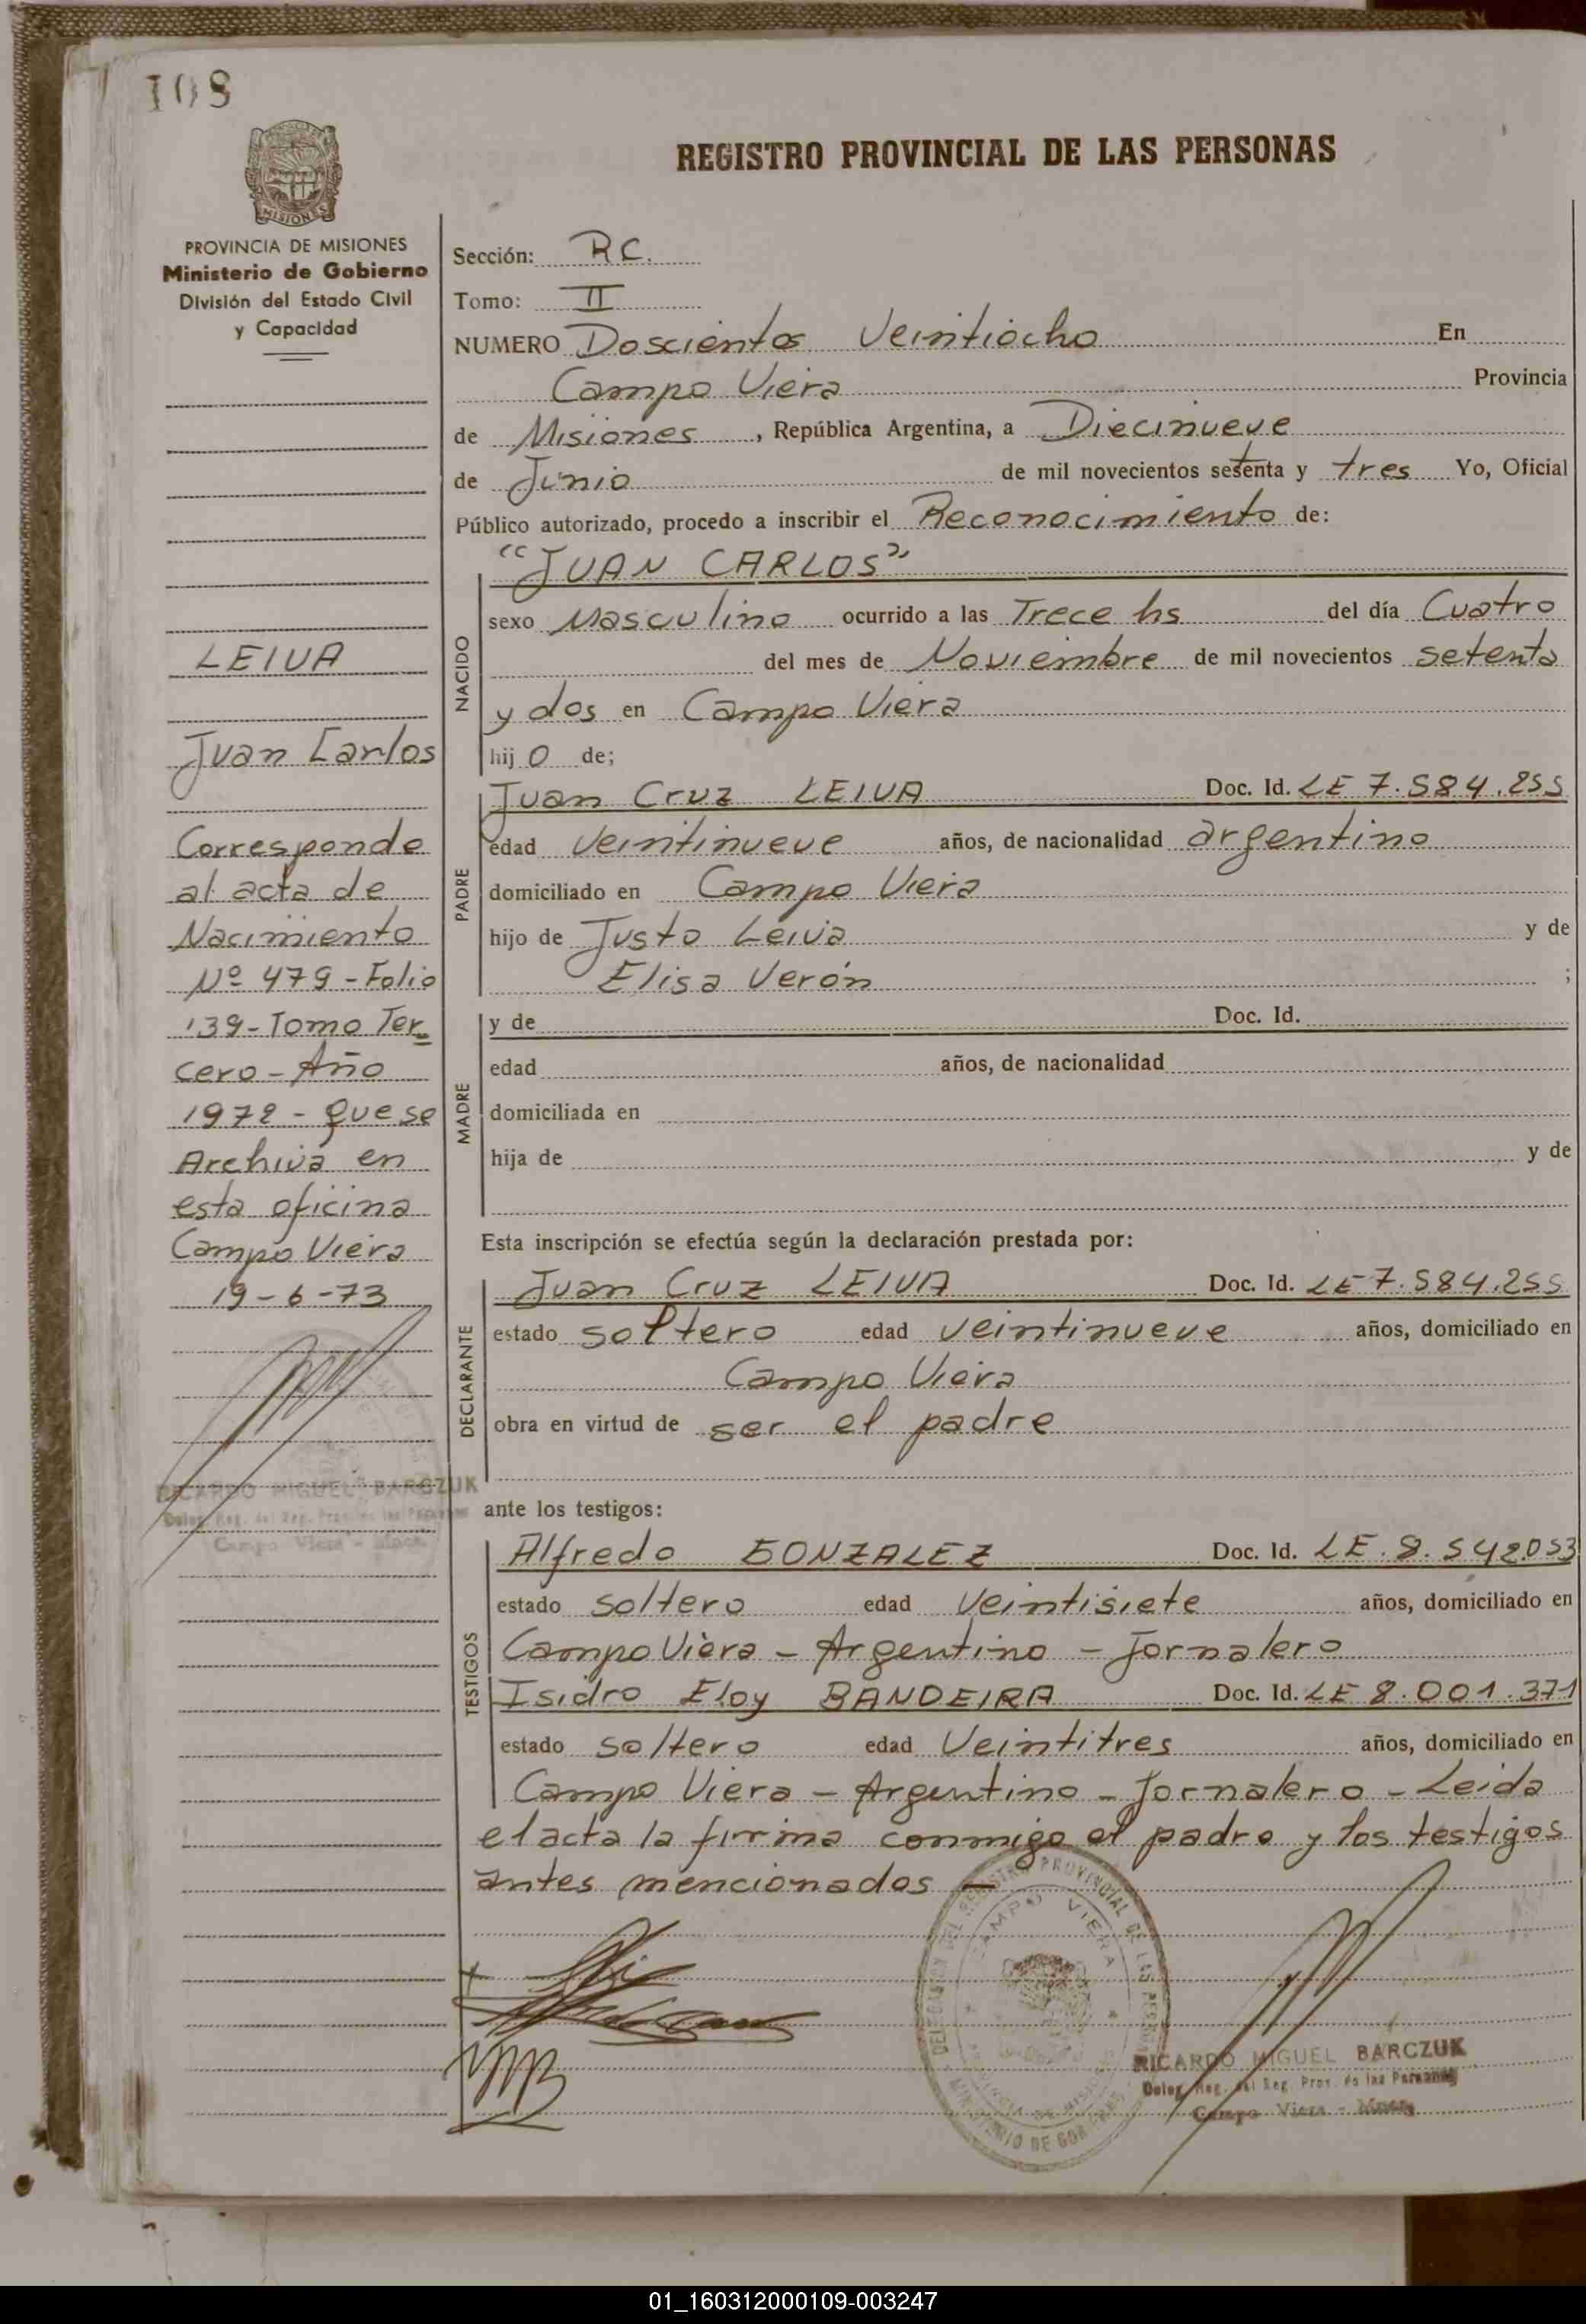 108
MISIONES
PROVINCIA DE MISIONES
Ministerio de Gobierno
División del Estado Civil
y Capacidad
LEIVA
Juan Carlos
Corresponde
al acta de
Nacimiento
Nº 479 - Folio
139 - Tomo Ter=
cero - Año
1972 - que se
Archiva en
esta oficina
Campo Viera
19-6-73
RICARDO MIGUEL BARCZUK
Deleg. Reg. del Reg. Prov. de las Personas
Campo Viera - Mnes.
REGISTRO PROVINCIAL DE LAS PERSONAS
Sección: RC.
Tomo: II
NUMERO Doscientos Veintiocho En
Campo Viera Provincia
de Misiones, República Argentina, a Diecinueve
de Junio de mil novecientos setenta y tres Yo, Oficial
Público autorizado, procedo a inscribir el Reconocimiento de:
NACIDO
"JUAN CARLOS"
sexo Masculino ocurrido a las Trece hs del día Cuatro
del mes de Noviembre de mil novecientos setenta
y dos en Campo Viera
hijo de;
PADRE
Juan Cruz LEIVA Doc. Id. LE 7.584.255
edad veintinueve años, de nacionalidad argentino
domiciliado en Campo Viera
hijo de Justo Leiva y de
Elisa Verón ;
MADRE
y de Doc. Id.
edad años, de nacionalidad
domiciliada en
hija de y de
Esta inscripción se efectúa según la declaración prestada por:
DECLARANTE
Juan Cruz LEIVA Doc. Id. LE 7.584.255
estado soltero edad veintinueve años, domiciliado en
Campo Viera
obra en virtud de ser el padre
ante los testigos:
TESTIGOS
Alfredo GONZALEZ Doc. Id. LE. 8.542.053
estado soltero edad Veintisiete años, domiciliado en
Campo Viera - Argentino - Jornalero
Isidro Eloy BANDEIRA Doc. Id. LE 8.001.371
estado soltero edad Veintitres años, domiciliado en
Campo Viera - Argentino - Jornalero - Leida
el acta la firma conmigo el padre y los testigos
antes mencionados —
DELEGACION DEL REGISTRO PROVINCIAL DE LAS PERSONAS
CAMPO VIERA
PROVINCIA DE MISIONES
MINISTERIO DE GOBIERNO
RICARDO MIGUEL BARCZUK
Deleg. Reg. del Reg. Prov. de las Personas
Campo Viera - Mnes.
01_160312000109-003247